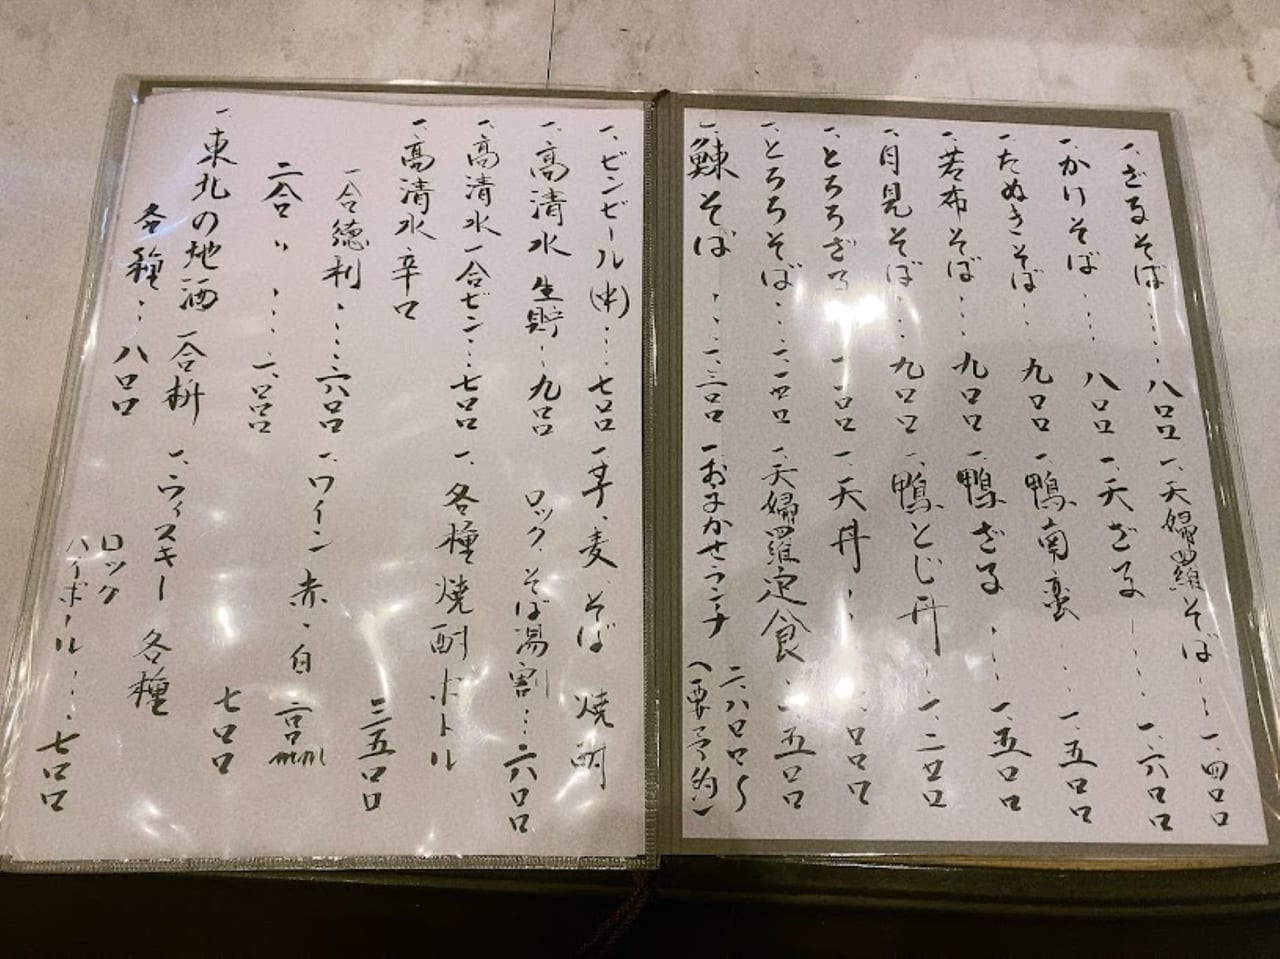 一、ざるそば・・・・八〇〇
一、かけそば・・・・八〇〇
一、たぬきそば・・九〇〇
一、若布そば・・・九〇〇
一、月見そば・・・九〇〇
一、とろろざる
一、とろろそば・・・
一、鰊そば・・・一、三〇〇
一、天婦羅そば・・・一、四〇〇
一、天ざる・・・一、六〇〇
一、鴨南蛮・・一、五〇〇
一、鴨ざる・・・一、五〇〇
一、鴨とじ丼・・一、二〇〇
一、天丼・・
一、天婦羅定食・・一、五〇〇
一、おまかせランチ
二、八〇〇〜
(要予約)
一、ビンビール(中)・・・・七〇〇
一、高清水生貯・・九〇〇
一、高清水一合ビン・・・七〇〇
一、高清水辛口
一合徳利・・・・六〇〇
二合〃・・・・一、〇〇〇
一、東北の地酒 一合枡
各種・・・八〇〇
一、芋、麦、そば 焼酎
ロック、そば湯割・・・六〇〇
一、各種焼酎ボトル
三五〇〇
一、ワイン 赤・白
七〇〇
一、ウィスキー 各種
ロック
ハイボール・・・・七〇〇